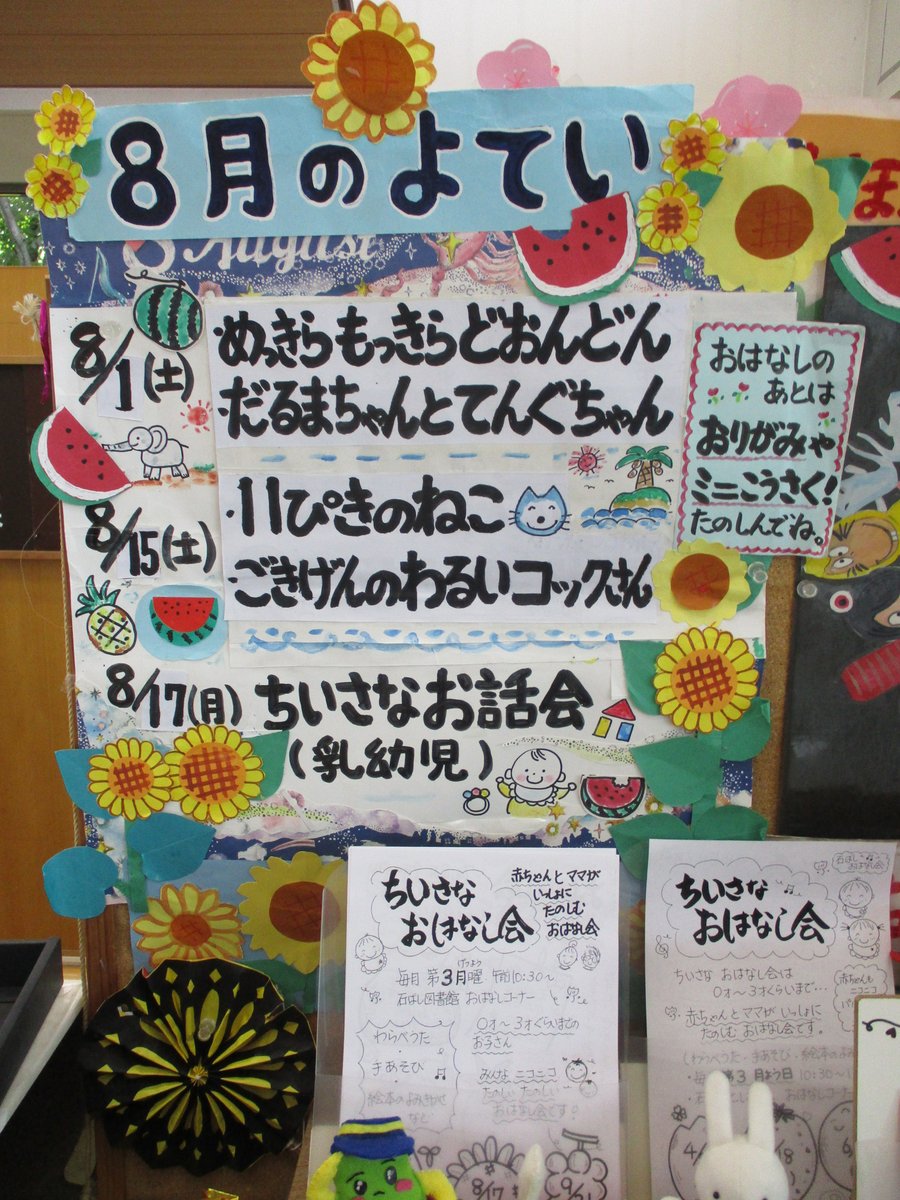 8月のよてい
August
8/1(土)
めっきらもっきらどおんどん
だるまちゃんとてんぐちゃん
おはなしの
あとは
おりがみや
ミニこうさく!
たのしんでね。
8/15(土)
・11ぴきのねこ
・ごきげんのわるいコックさん
8/17(月) ちいさなお話会
(乳幼児)
ちいさな
おはなし会
赤ちゃんとママが
いっしょに
たのしむ
おはなし会
毎月 第3月曜 午前10:30~
げつよう
石ばし図書館 おはなしコーナー
わらべうた・
手あそび・
絵本のよみきかせ
など
0才~3才ぐらいまでの
お子さん
みんな ニコニコ
たのしい たのしい
おはなし会です!
8/17
ちいさな
おはなし会
石ばし
おはなし会
ちいさな おはなし会は
0才~3才くらいまで…
赤ちゃんとママが いっしょに
たのしむ おはなし会です。
赤ちゃんも
ニコニコ
(わらべうた・手あそび・絵本のよみ
・毎月第3月よう日 10:30~
おはなしコーナー